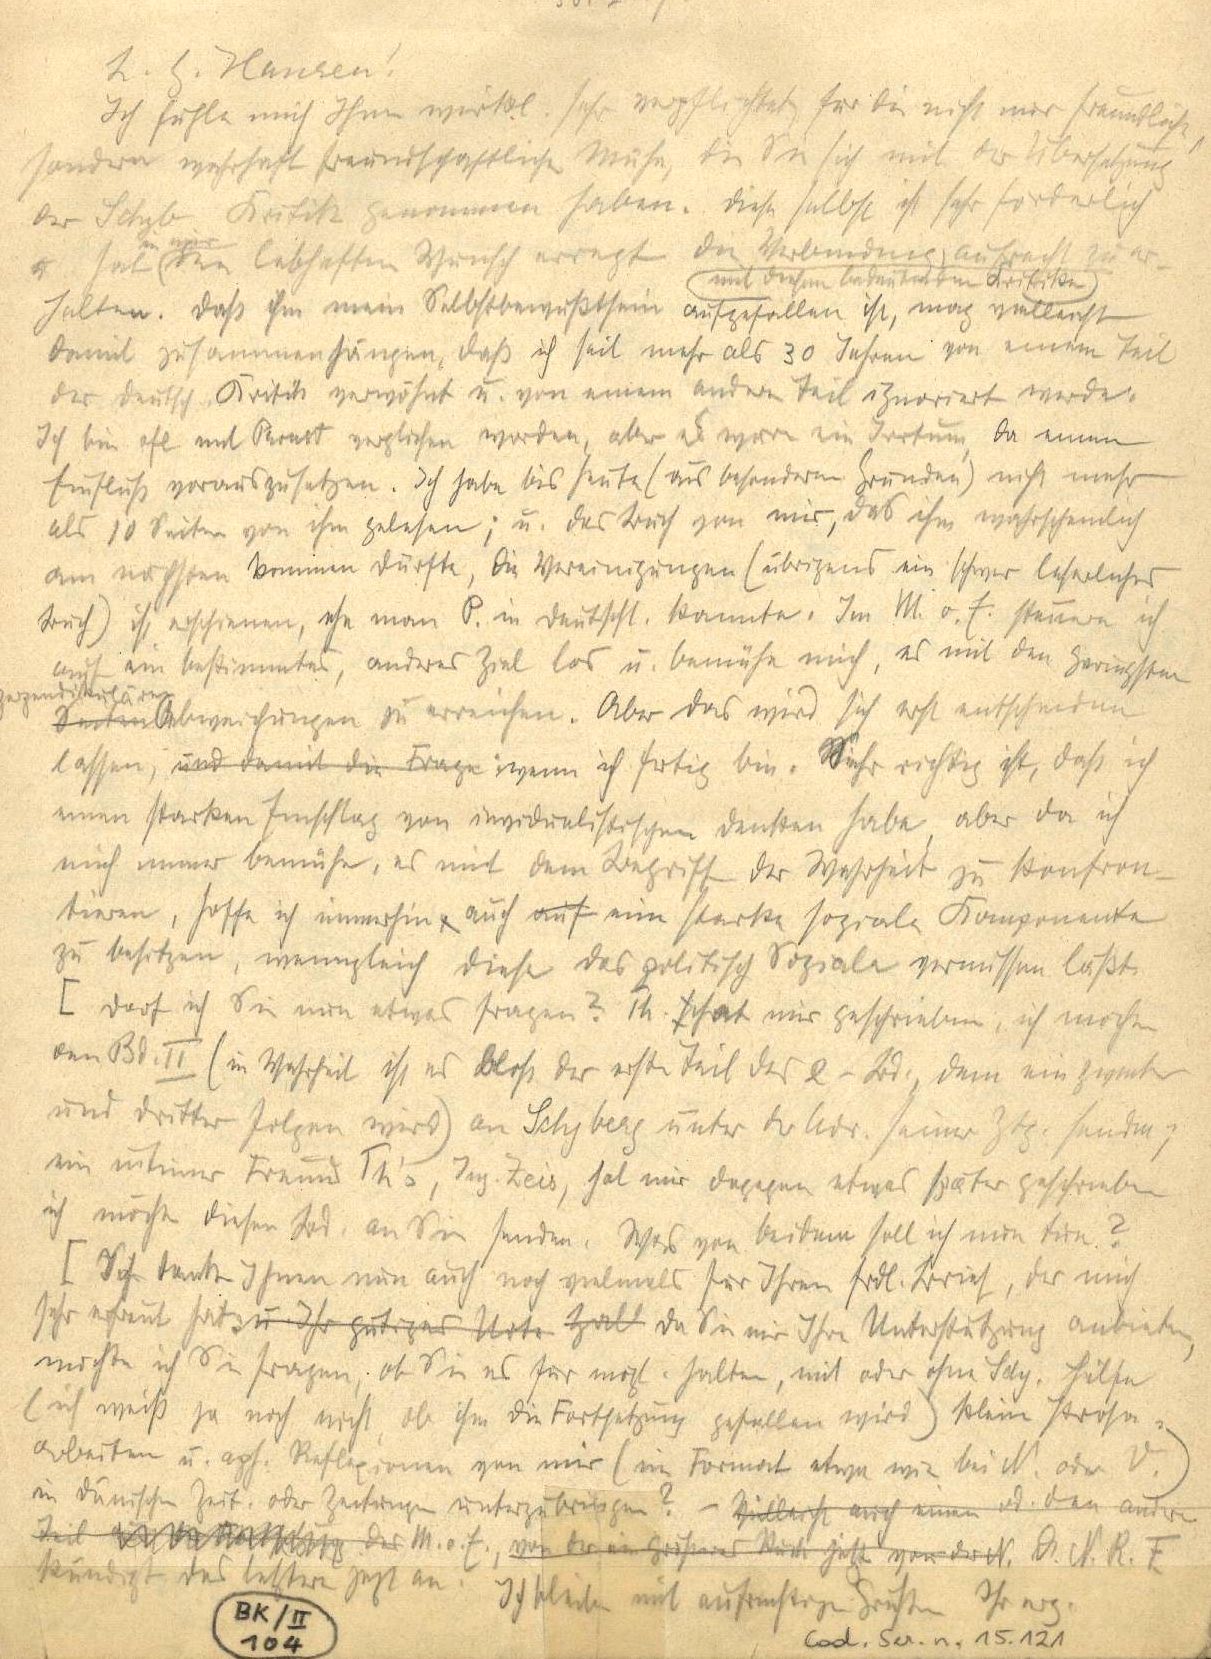 L. H. Hansen!
Ich fühle mich Ihnen wirkl. sehr verpflichtet für die nicht nur freundliche,
sondern wahrhaft freundschaftliche Mühe, die Sie sich mit der Übersetzung
der Schyb Kritik genommen haben. Diese selbst ist sehr förderlich
u. hat in mir den lebhaften Wunsch erregt die Verbindung aufrecht zu er-
mit diesem bedeutenden Kritiker
halten. Daß ihm mein Selbstbewußtsein aufgefallen ist, mag vielleicht
damit zusammenhängen, daß ich seit mehr als 30 Jahren von einem Teil
der deutsch Kritik verwöhnt u. von einem andern Teil ignoriert werde.
Ich bin oft mit Proust verglichen worden, aber es wäre ein Irrtum, da einen
Einfluß vorauszusetzen. Ich habe bis heute (aus besonderen Gründen) nicht mehr
als 10 Seiten von ihm gelesen; u. das Buch von mir, das ihm wahrscheinlich
am nächsten kommen dürfte, die Vereinigungen (übrigens ein schwer leserliches
Buch) ist erschienen, ehe man P. in Deutschl. kannte. Im M. o. E. steuere ich
auf ein bestimmtes, anderes Ziel los u. bemühe mich, es mit den geringsten
perpendikulären
Seiten Abweichungen zu erreichen. Aber das wird sich erst entscheiden
lassen, und damit die Frage wenn ich fertig bin. Sehr richtig ist, daß ich
einen starken Einschlag von invidualistischem Denken habe, aber da ich
mich immer bemühe, es mit dem Begriff der Wahrheit zu konfron-
tieren, hoffe ich immerhin auch auf eine starke soziale Komponente
zu besitzen, wenngleich diese das politisch Soziale vermissen läßt.
[ Darf ich Sie nun etwas fragen? Th. hat mir geschrieben, ich möchte
den Bd. II (in Wahrheit ist es bloß der erste Teil des 2 - Bd., dem ein zweiter
und dritter folgen wird) an Schyberg unter der Adr. seiner Ztg. senden;
ein intimer Freund Th's, Ing. Zeis, hat mir dagegen etwas später geschrieben
ich möchte diesen Bd. an Sie senden. Was von beidem soll ich nun tun?
[ Ich danke Ihnen nun auch noch vielmals für Ihren frdl. Brief, der mich
sehr erfreut hat, u Ihr gütiges Urte Da Sie mir Ihre Unterstützung anbieten,
möchte ich Sie fragen, ob Sie es für mögl. halten, mit oder ohne Schy. Hilfe
(ich weiß ja noch nicht, ob ihm die Fortsetzung gefallen wird) klein Prosa-
arbeiten u. aph. Reflexionen von mir (im Format etwa wie bei N. oder V.)
in dänischen Zeit. oder Zeitungen unterzubringen? - Vielleicht auch einen od. den andern
Teil der M. o. E., von der ein größeres Stück jetzt von der N. N. R. F.
kündigt das letztere jetzt an. Ich bleibe mit aufrichtigen Grüßen Ihr erg.
BK/II
104
Cod. Ser. n. 15.121